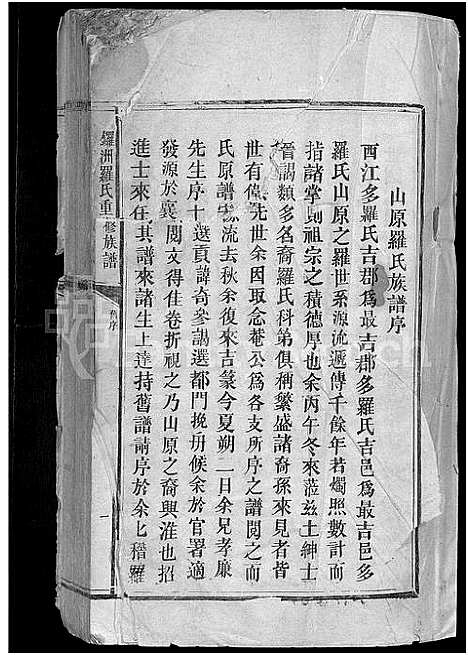 山原羅氏族譜序
西江多羅氏吉郡為最吉郡多羅氏吉邑為最吉邑多
羅氏山原之羅世系源流遞傳千餘年若燭照數計而
指諸掌則祖宗之積德厚也余丙午冬來蒞茲土紳士
晉謁類多名裔羅氏科第俱稱繁盛諸裔孫來見者皆
世有偉 先世余因取念菴公為各支所序之譜閱之而
氏原譜 流去秋余復來吉篆今夏朔一日余兄孝廉
先生序十 選頁諱奇參謁選都門挽冊候余於官署適
發源於襄 閱文得佳卷折視之乃山原之裔興淮也招
進士來任其譜來諸生上達持舊譜請序於余匕稽羅
羅洲羅氏重修族譜
舊序
一